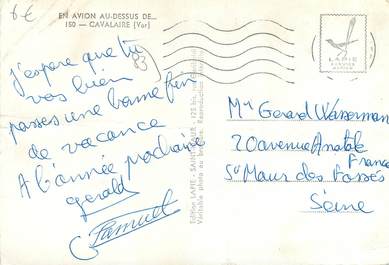 6€
EN AVION AU-DESSUS DE...
150 — CAVALAIRE (Var)
83
J'espère que tu
vas bien
passes une bonne fin
de vacance
A l'année prochaine
gérald
Samuel
Edition LAPIE - SAINT-MAUR
Véritable photo au bromure. Reproduction
LAPIE
Mr Gerard Wasserman
20 avenue Anatole
France
St Maur des Fossés
Seine